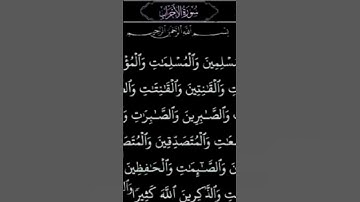 سورة الأحزاب
بسم الله الرحمن الرحيم
ـسْلِمِينَ وَٱلْمُسْلِمَٰتِ وَٱلْمُؤْ
تِ وَٱلْقَٰنِتِينَ وَٱلْقَٰنِتَٰتِ
تِ وَٱلصَّٰبِرِينَ وَٱلصَّٰبِرَٰتِ وَٱ
ـعَٰتِ وَٱلْمُتَصَدِّقِينَ وَٱلْمُتَصَ
ـنَ وَٱلصَّٰٓئِمَٰتِ وَٱلْحَٰفِظِينَ
تِ وَٱلذَّٰكِرِينَ ٱللَّهَ كَثِيرًا وَٱل